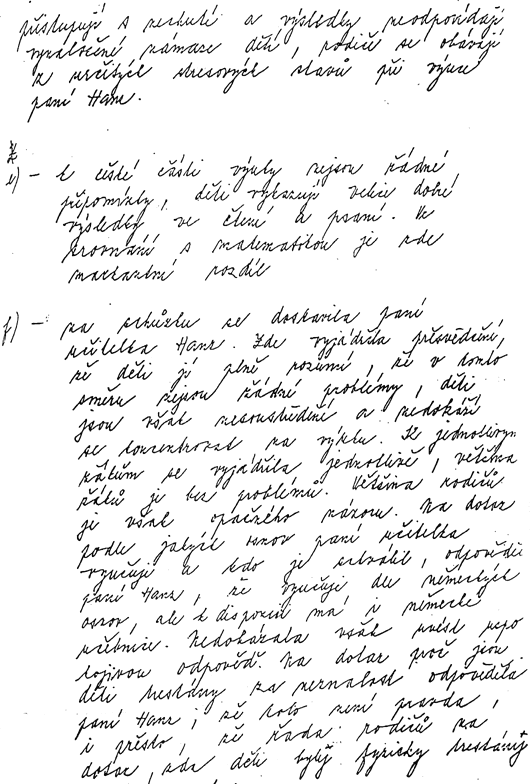 přistupují s nechutí a výsledky neodpovídají
vynaložené námaze dětí, rodiče se obávají
z určitých stresových stavů při výuce
paní Hanz.
e) - k české části výuky nejsou žádné
připomínky, děti vykazují velice dobré
výsledky ve čtení a psaní. Ve
srovnání s matematikou je zde
markantní rozdíl
f) - na schůzku se dostavila paní
učitelka Hanz. Zde vyjádřila přesvědčení,
že děti jí plně rozumí, že v tomto
směru nejsou žádné problémy, děti
jsou však nesoustředěné a nedokáží
se koncentrovat na výuku. Ke jednotlivým
žákům se vyjádřila jednotlivě, většina
žáků je bez problémů. Většina rodičů
je však opačného názoru. Na dotaz
podle jakých osnov paní učitelka
vyučuje a kdo je schválil, odpověděla
paní Hanz, že vyučuje dle německých
osnov, ale k dispozici má i německé
učebnice. Nedokázala však uvést uspo
kojivou odpověď. Na dotaz proč jsou
děti trestány za neznalost odpověděla
paní Hanz, že toto není pravda,
i přesto, že řada rodičů na
dotaz, zda děti byly fyzicky trestány